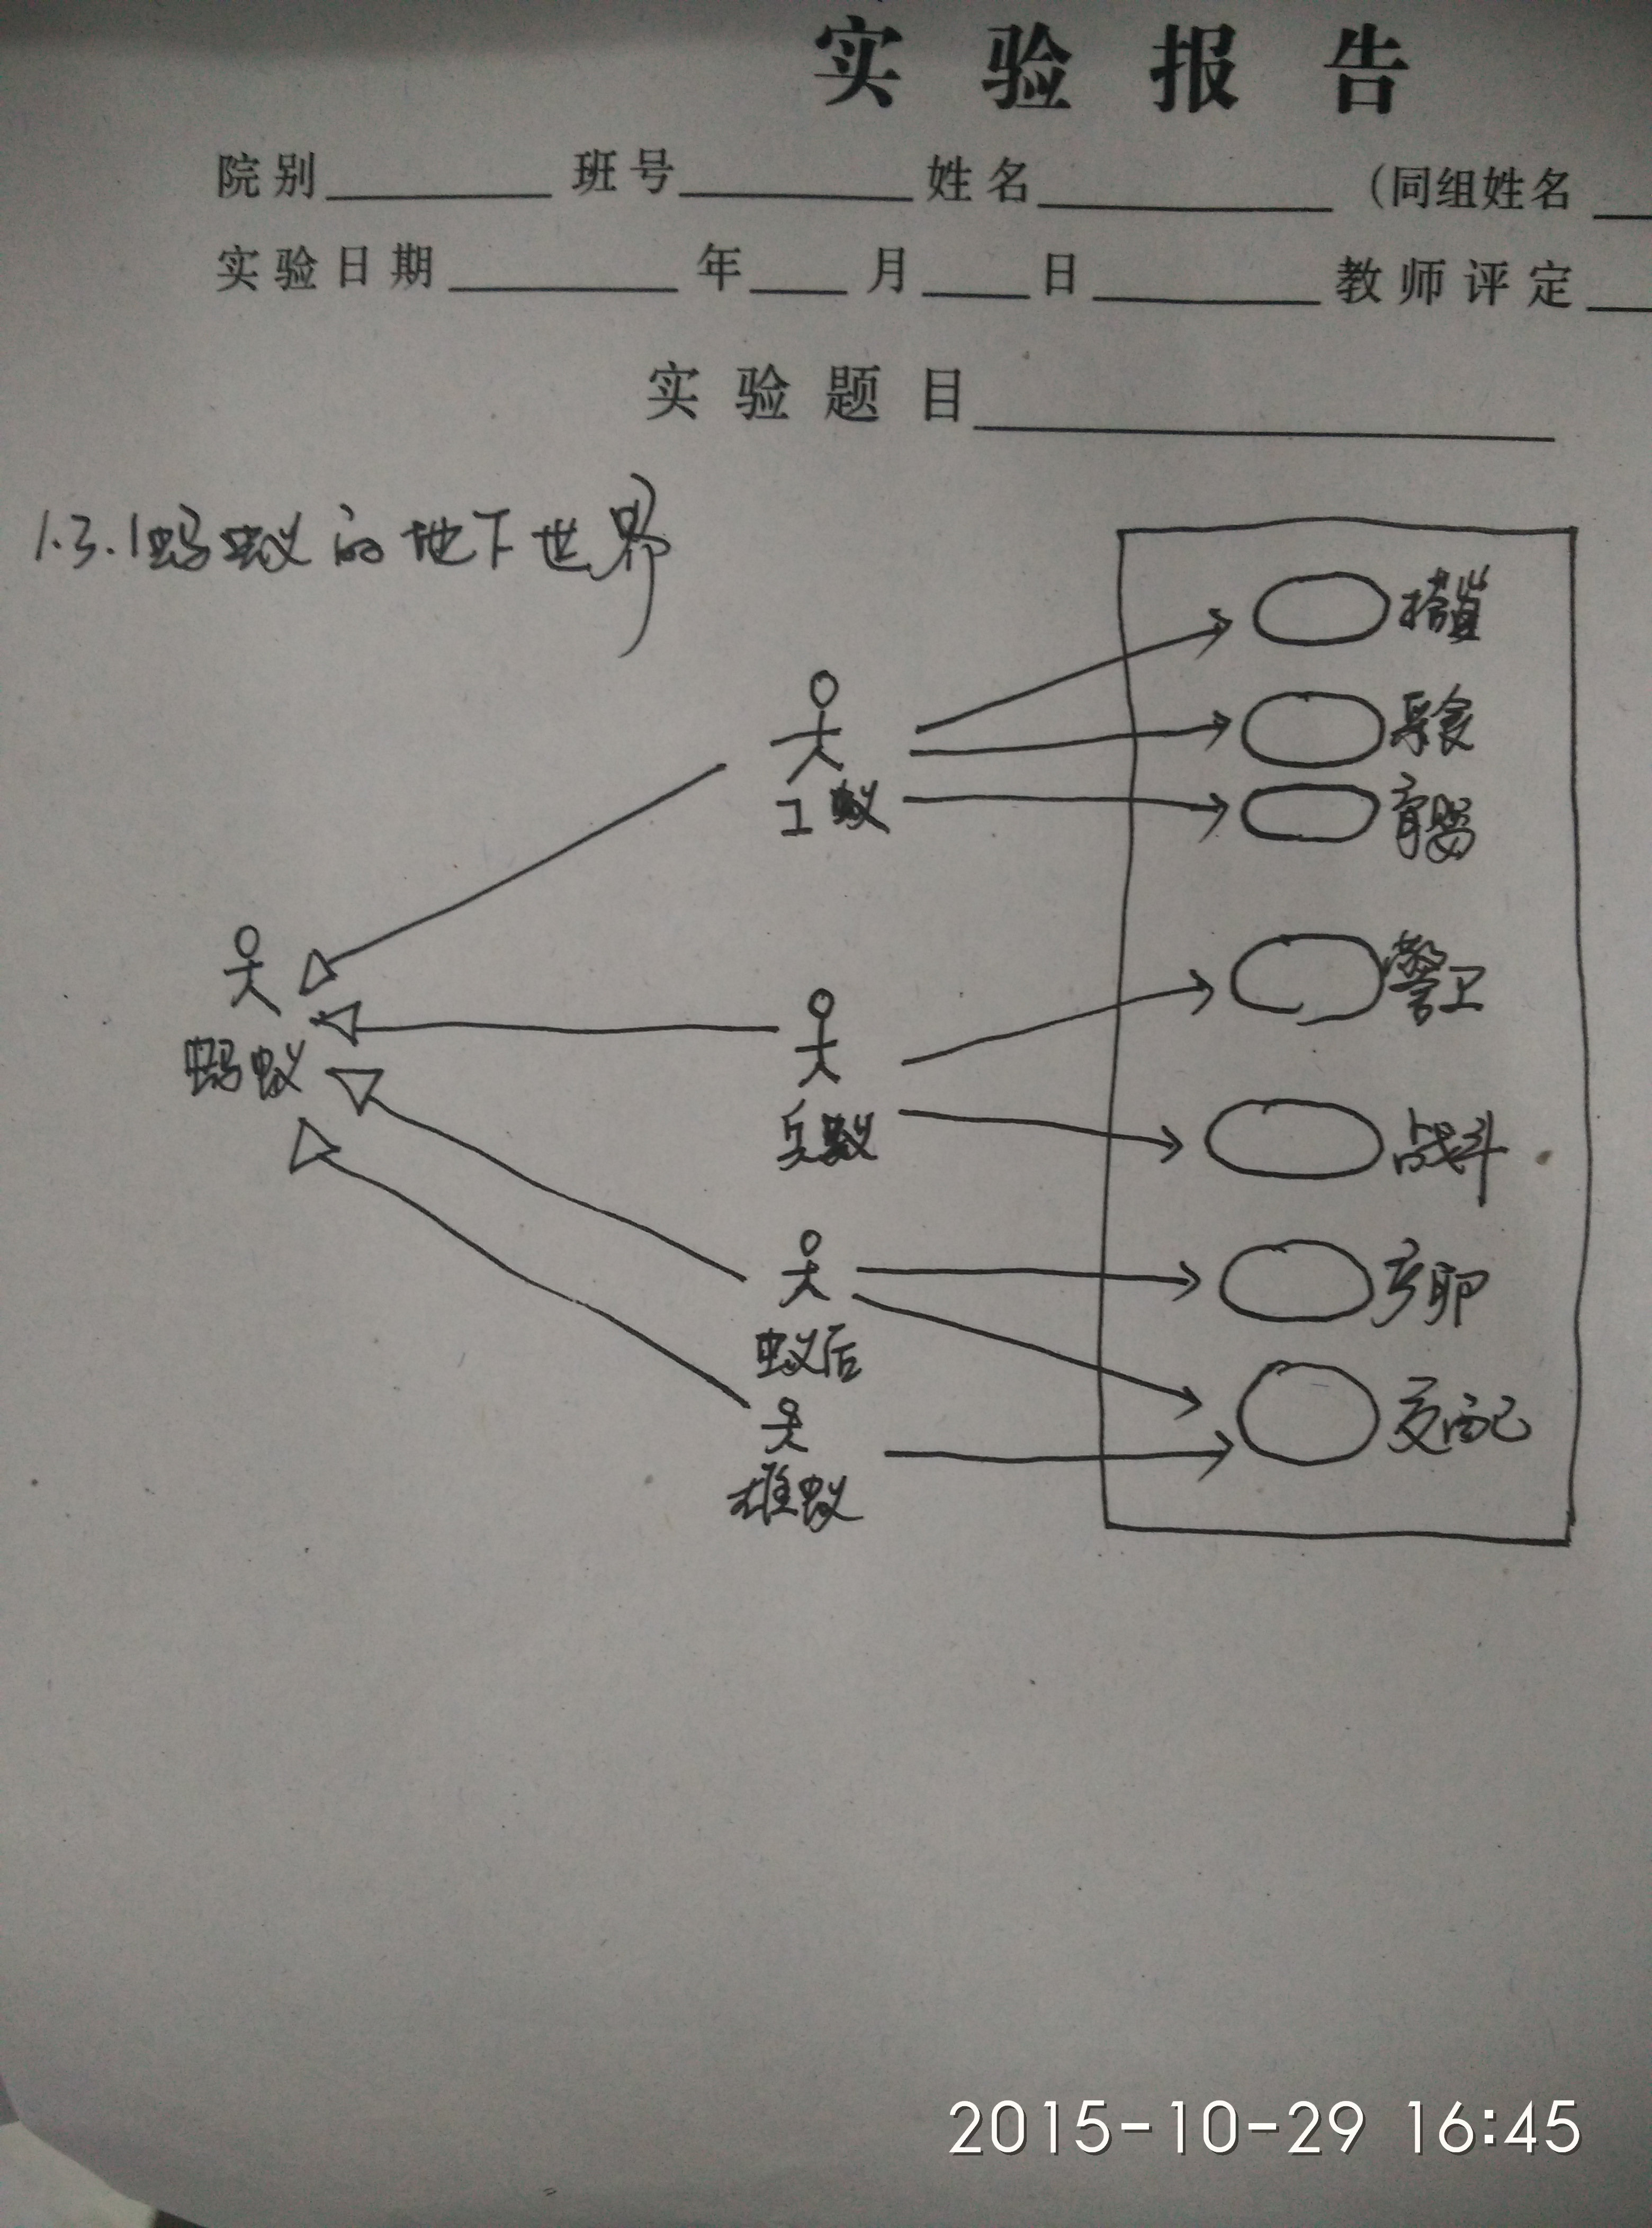 实验报告
院别 班号 姓名 (同组姓名
实验日期 年 月 日 教师评定
实验题目
1.3.1蚂蚁的地下世界
工蚁
蚂蚁
兵蚁
蚁后
雄蚁
搭巢
寻食
育婴
警卫
战斗
产卵
交配
2015-10-29 16:45